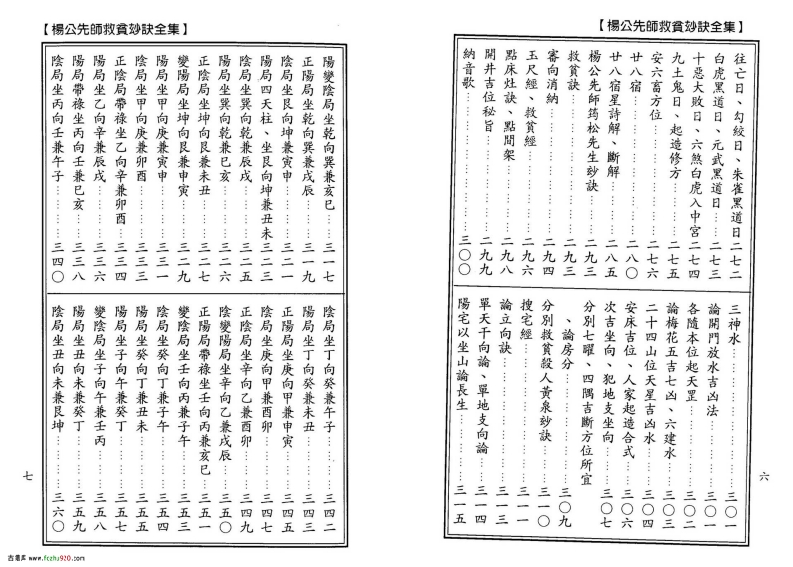 【楊公先師救貧竗訣全集】
往亡日、勾絞日、朱雀黑道日二七二
白虎黑道日、元武黑道日…二七三
十惡大敗日、六煞白虎入中宮…二七四
九土鬼日、起造修方…二七五
安六畜方位…二七六
廿八宿…二八〇
廿八宿星詩解、斷解…二八五
楊公先師筠松先生竗訣…二九二
救貧訣…二九三
審向消納…二九三
玉尺經、救貧經…二九四
點床灶訣、點間架…二九八
開井吉位秘旨…二九九
納音歌…三〇〇
三神水…三〇一
論開門放水吉凶法…三〇一
各隨本位起天罡…三〇二
論梅花五吉七凶、六建水…三〇三
二十四山位天星吉凶水…三〇四
安床吉位、人家起造合式…三〇六
次吉坐向、犯地支坐向…三〇七
分別七曜、四隅吉斷方位所宜
、論房分…三〇九
分別救貧殺人黃泉竗訣…三一〇
搜宅經…三一〇
論立向訣…三一三
單天干向論、單地支向論…三一四
陽宅以坐山論長生…三一五
六
【楊公先師救貧竗訣全集】
陽變陰局坐乾向巽兼亥巳…三一七
正陽局坐乾向巽兼戌辰…三一九
陰局坐艮向坤兼寅申…三二一
陽局四天柱、坐艮向坤兼丑未三二三
陰局坐巽向乾兼辰戌…三二五
陽局坐巽向乾兼巳亥…三二六
正陰局坐坤向艮兼未丑…三二七
變陽局坐坤向艮兼申寅…三二九
陽局坐甲向庚兼寅申…三三一
陰局坐甲向庚兼卯酉…三三三
正陰局帶祿坐乙向辛兼卯酉…三三四
陽局坐乙向辛兼辰戌…三三六
陽局帶祿坐丙向壬兼巳亥…三三八
陰局坐丙向壬兼午子…三四〇
陰局坐丁向癸兼午子…三四二
陽局坐丁向癸兼未丑…三四三
正陽局坐庚向甲兼申寅…三四四
陰局坐庚向甲兼酉卯…三四七
正陰局坐辛向乙兼酉卯…三四九
陰變陽局坐辛向乙兼戌辰…三五〇
正陽局帶祿坐壬向丙兼亥巳…三五一
變陰局坐壬向丙兼子午…三五三
陰局坐癸向丁兼子午…三五五
陽局坐癸向丁兼丑未…三五五
陽局坐子向午兼癸丁…三五七
陰局坐子向午兼壬丙…三五八
陽局坐丑向未兼癸丁…三五九
陰局坐丑向未兼艮坤…三六〇
七
古易库 www.fczhu920.com